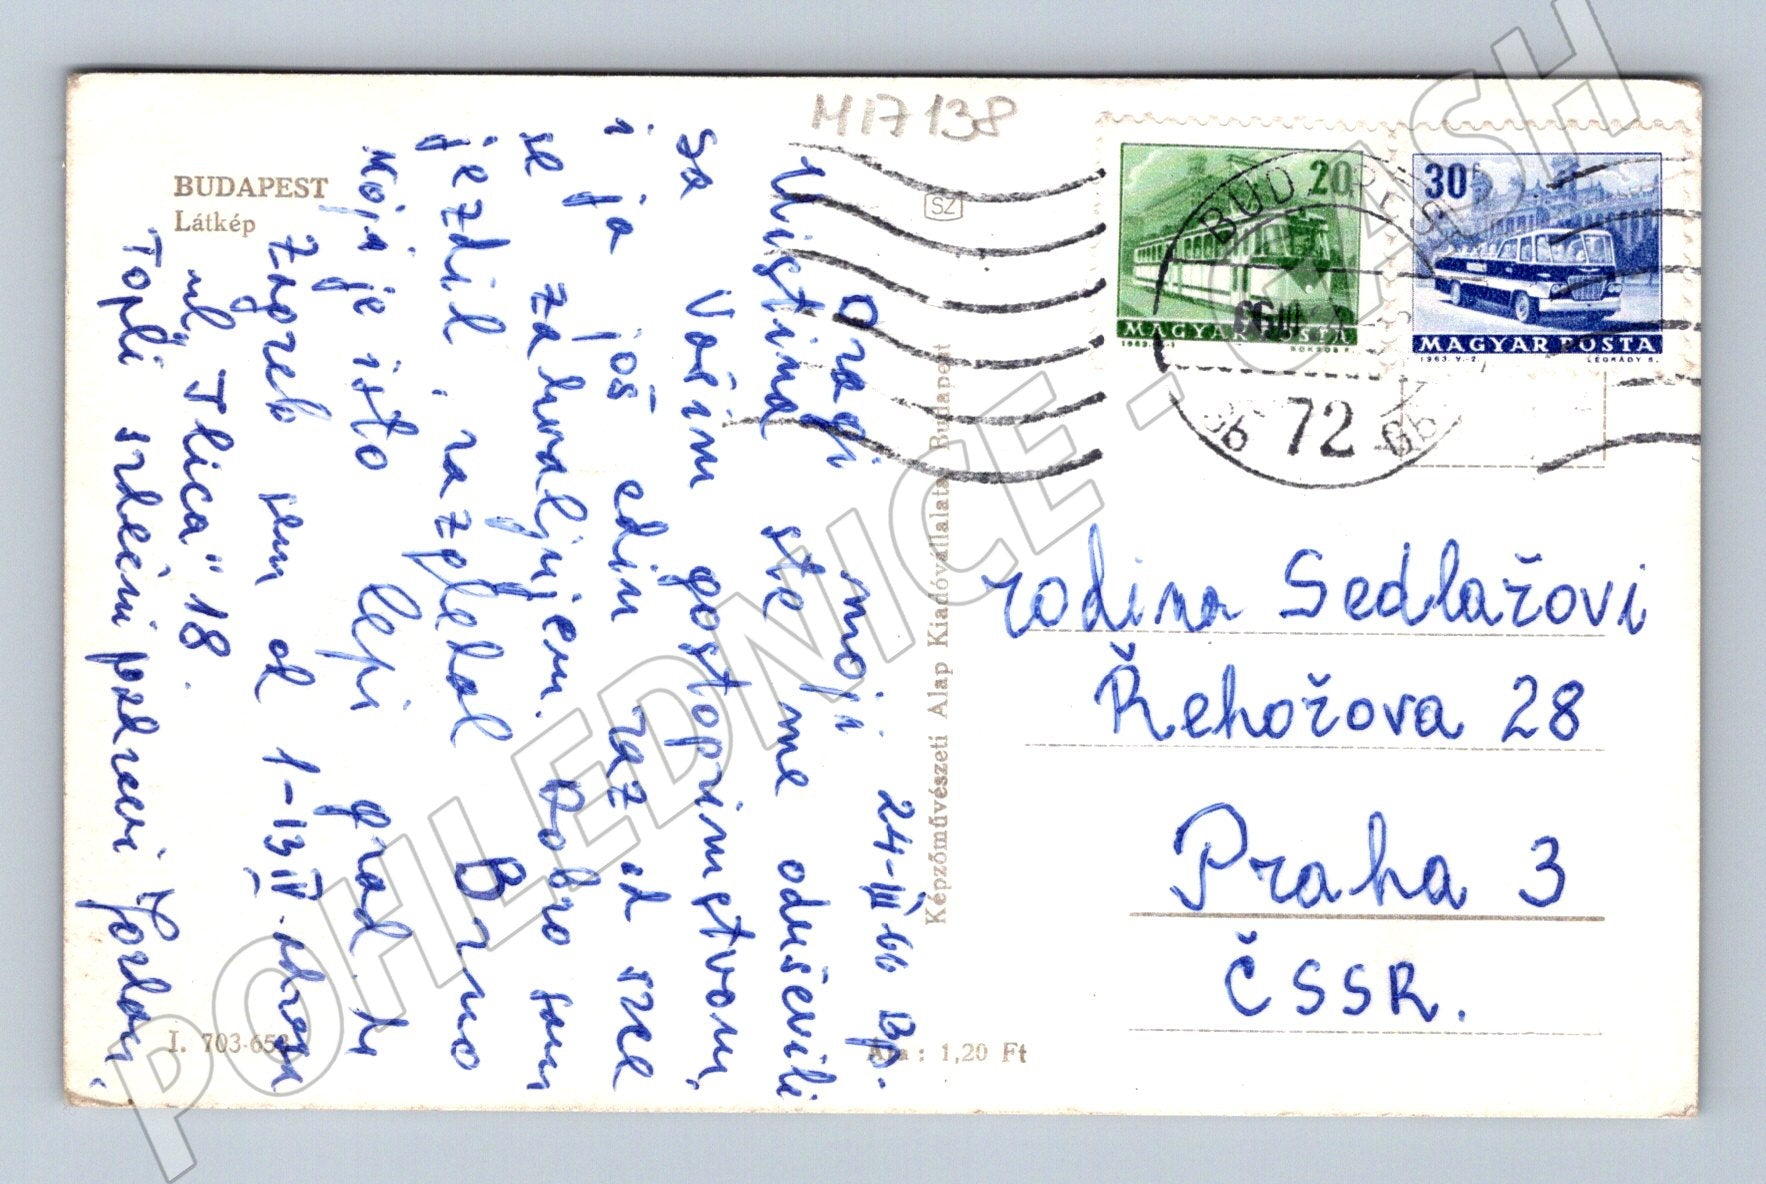 M17138
BUDAPEST
Látkép
SZ
20
MAGYAR POSTA
30
MAGYAR POSTA
1963. V.-2.
LÉGRÁDY S.
BUDAPEST
72
24-III 66 Bp.
Dragi moji
Uistina ste me oduševili
sa Vošim gostoprimstvom,
i ja još edin raz od srce
se zahvaljujem. Dobro sam
jezdil, razgledal Brno
koji je isto lepi grad. U
Zagreb sem od 1-13 IV. adresa
ul, "Ilica" 18.
Topli srdečni pozdravi
Képzőművészeti Alap Kiadóvállalata Budapest
rodina Sedlařovi
Řehořova 28
Praha 3
ČSSR.
I. 703-65
Ára : 1,20 Ft
POHLEDNICE - CASH